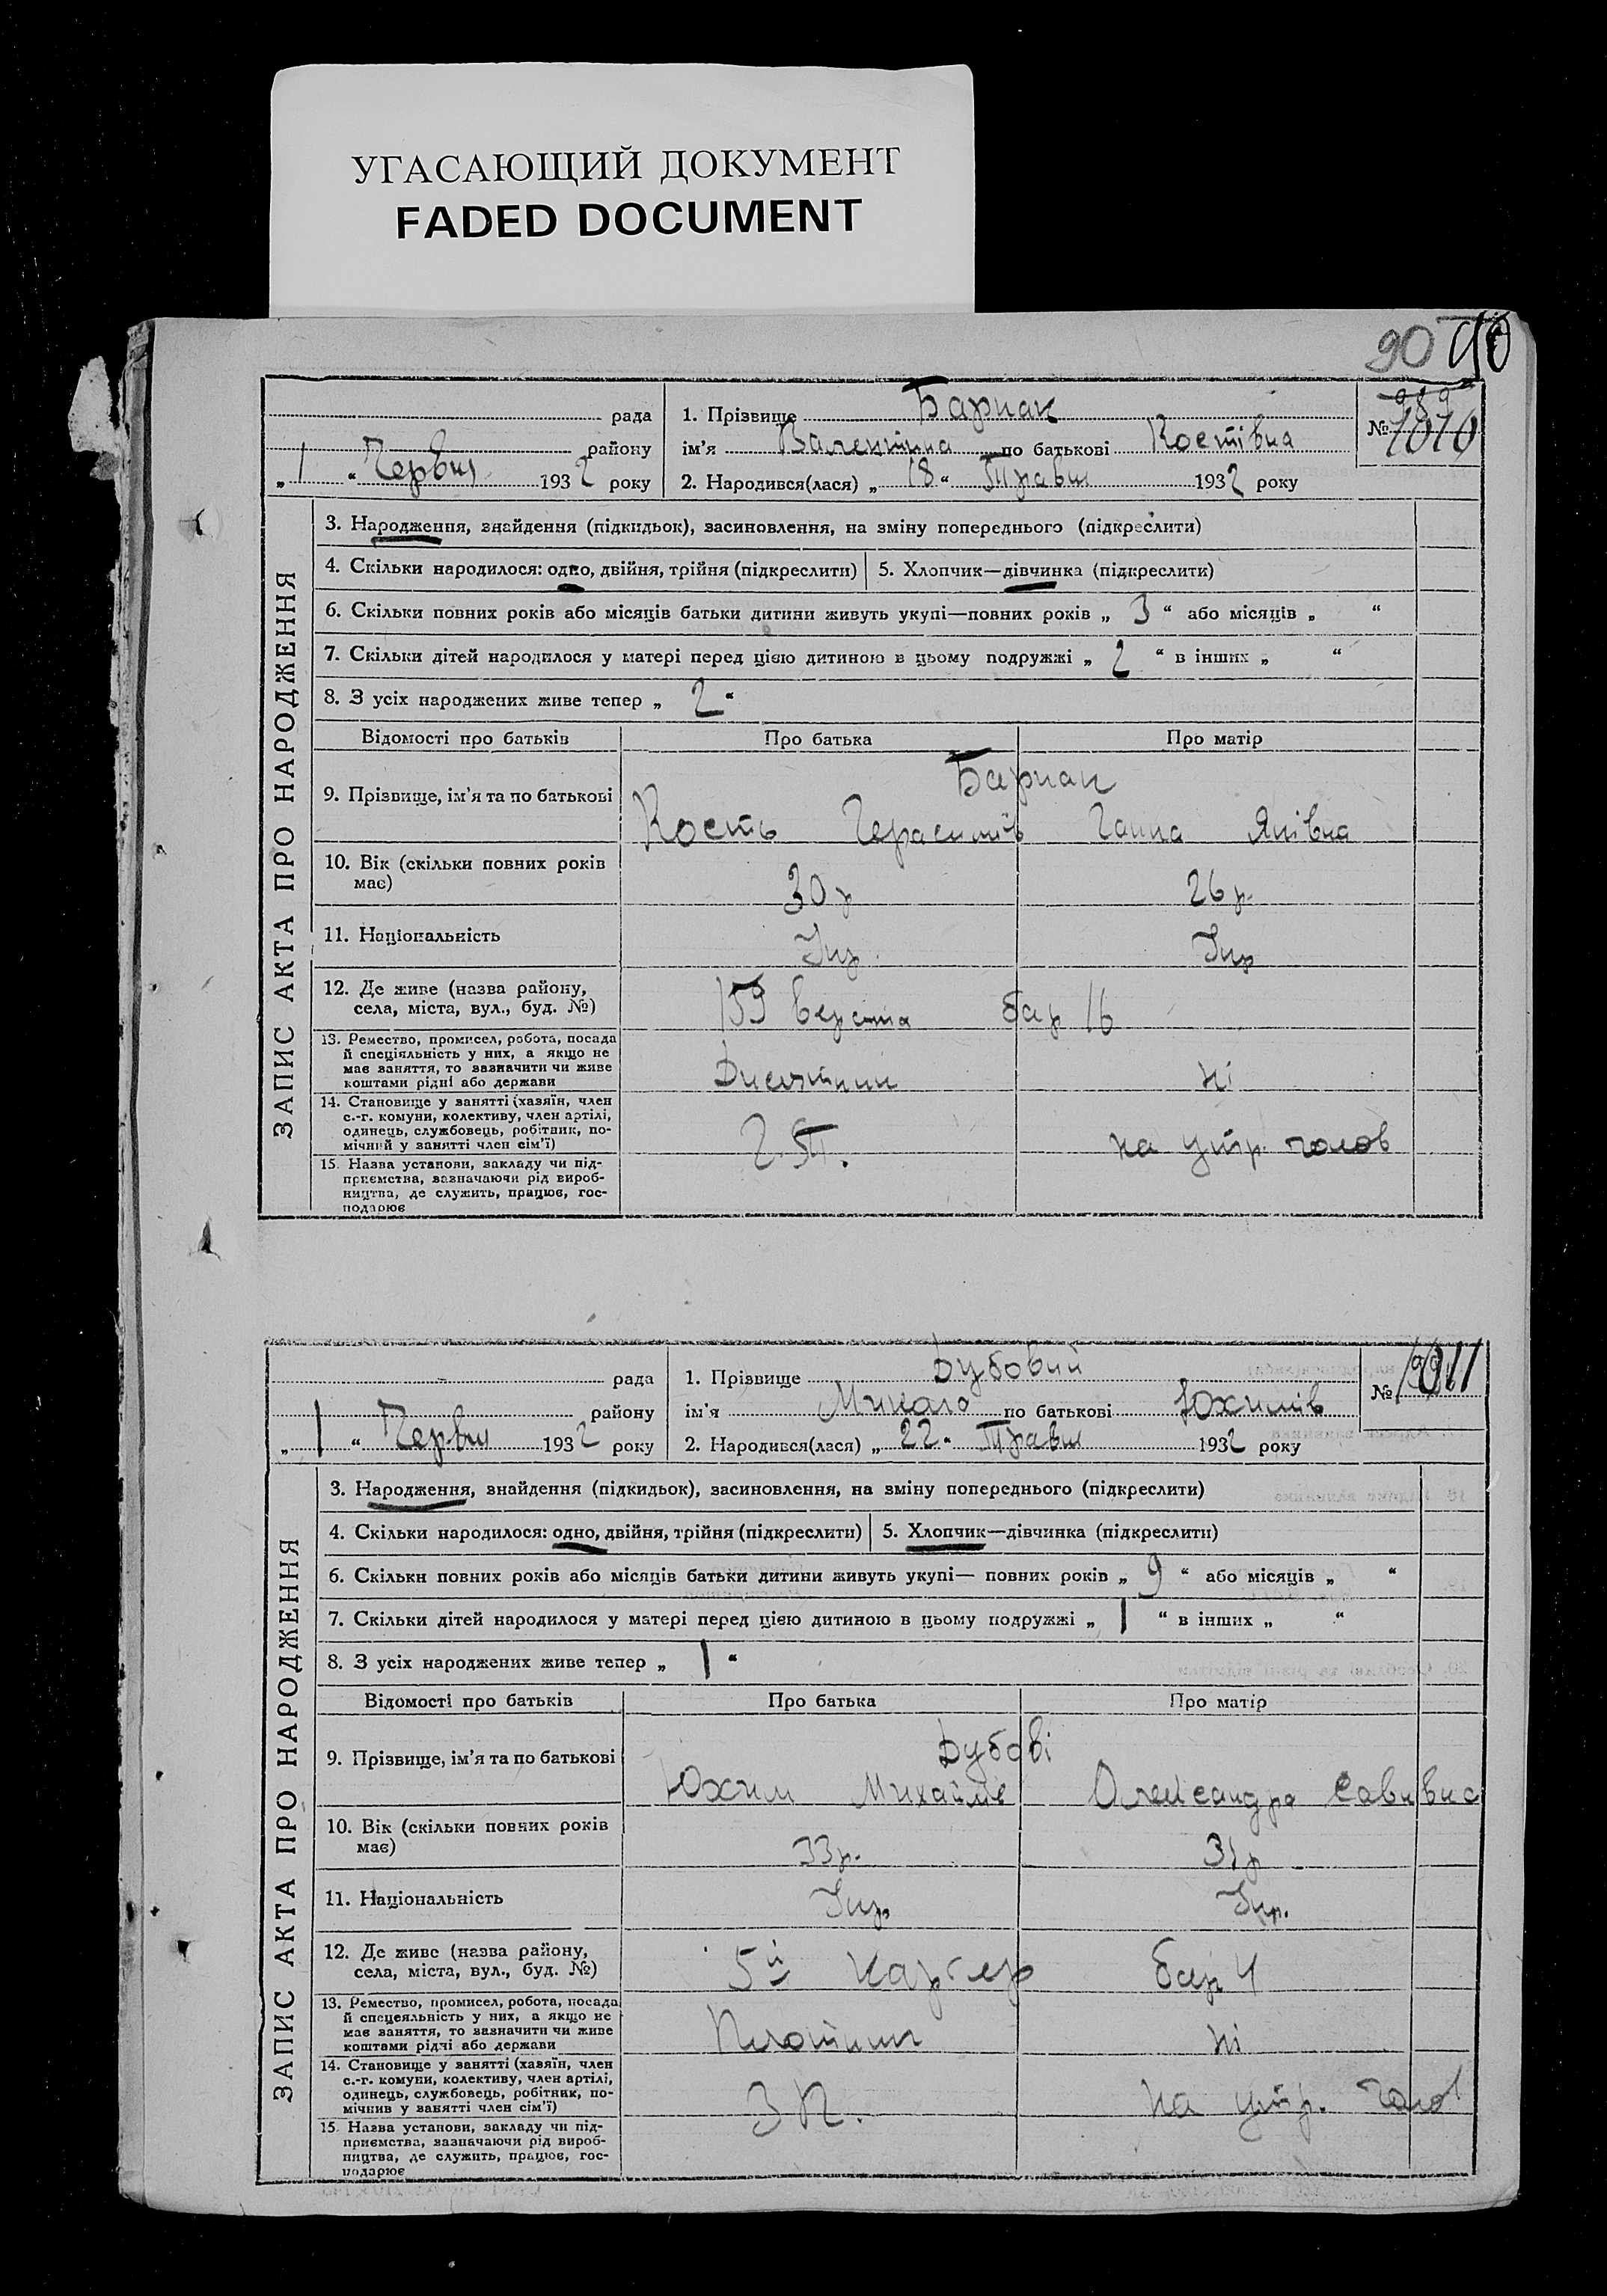 УГАСАЮЩИЙ ДОКУМЕНТ
FADED DOCUMENT
90
рада
1. Прізвище Барнак
№ 1010
району
ім'я Валентина по батькові Костівна
„ 1 “ Червня 1932 року
2. Народився(лася) „ 18 “ Травня 1932 року
ЗАПИС АКТА ПРО НАРОДЖЕННЯ
3. Народження, знайдення (підкидьок), засиновлення, на зміну попереднього (підкреслити)
4. Скільки народилося: одно, двійня, трійня (підкреслити)
5. Хлопчик—дівчинка (підкреслити)
6. Скільки повних років або місяців батьки дитини живуть укупі—повних років „ 3 “ або місяців „ “
7. Скільки дітей народилося у матері перед цією дитиною в цьому подружжі „ 2 “ в інших „ “
8. З усіх народжених живе тепер „ 2 “
Відомості про батьків
Про батька
Про матір
Барнак
9. Прізвище, ім'я та по батькові
Кость Герасимів
Ганна Яківна
10. Вік (скільки повних років
має)
30 р
26 р.
11. Національність
Укр.
Укр
12. Де живе (назва району,
села, міста, вул., буд. №)
159 верства бар 16
13. Ремество, промисел, робота, посада
й спеціяльність у них, а якщо не
має заняття, то зазначити чи живе
коштами рідні або держави
ні
14. Становище у занятті (хазяїн, член
с.-г. комуни, колективу, член артілі,
одинець, службовець, робітник, по-
мічний у занятті член сім'ї)
на утр. голов
15. Назва установи, закладу чи під-
приємства, зазначаючи рід вироб-
ництва, де служить, працює, гос-
подарює
рада
1. Прізвище Дубовий
№ 1011
району
ім'я Микола по батькові Юхимів
„ 1 “ Червня 1932 року
2. Народився(лася) „ 22 “ Травня 1932 року
ЗАПИС АКТА ПРО НАРОДЖЕННЯ
3. Народження, знайдення (підкидьок), засиновлення, на зміну попереднього (підкреслити)
4. Скільки народилося: одно, двійня, трійня (підкреслити)
5. Хлопчик—дівчинка (підкреслити)
6. Скільки повних років або місяців батьки дитини живуть укупі— повних років „ 9 “ або місяців „ “
7. Скільки дітей народилося у матері перед цією дитиною в цьому подружжі „ 1 “ в інших „ “
8. З усіх народжених живе тепер „ 1 “
Відомості про батьків
Про батька
Про матір
Дубові
9. Прізвище, ім'я та по батькові
Юхим Михайлів
Олександра Савівна
10. Вік (скільки повних років
має)
33 р.
31 р
11. Національність
Укр.
Укр.
12. Де живе (назва району,
села, міста, вул., буд. №)
5й карєр бар 4
13. Ремество, промисел, робота, посада
й спецеяльність у них, а якщо не
має заняття, то зазначити чи живе
коштами рідні або держави
Плотник
ні
14. Становище у занятті (хазяїн, член
с.-г. комуни, колективу, член артілі,
одинець, службовець, робітник, по-
мічнив у занятті член сім'ї)
З П.
на утр. голов
15. Назва установи, закладу чи під-
приємства, зазначаючи рід вироб-
ництва, де служить, працює, гос-
подарює